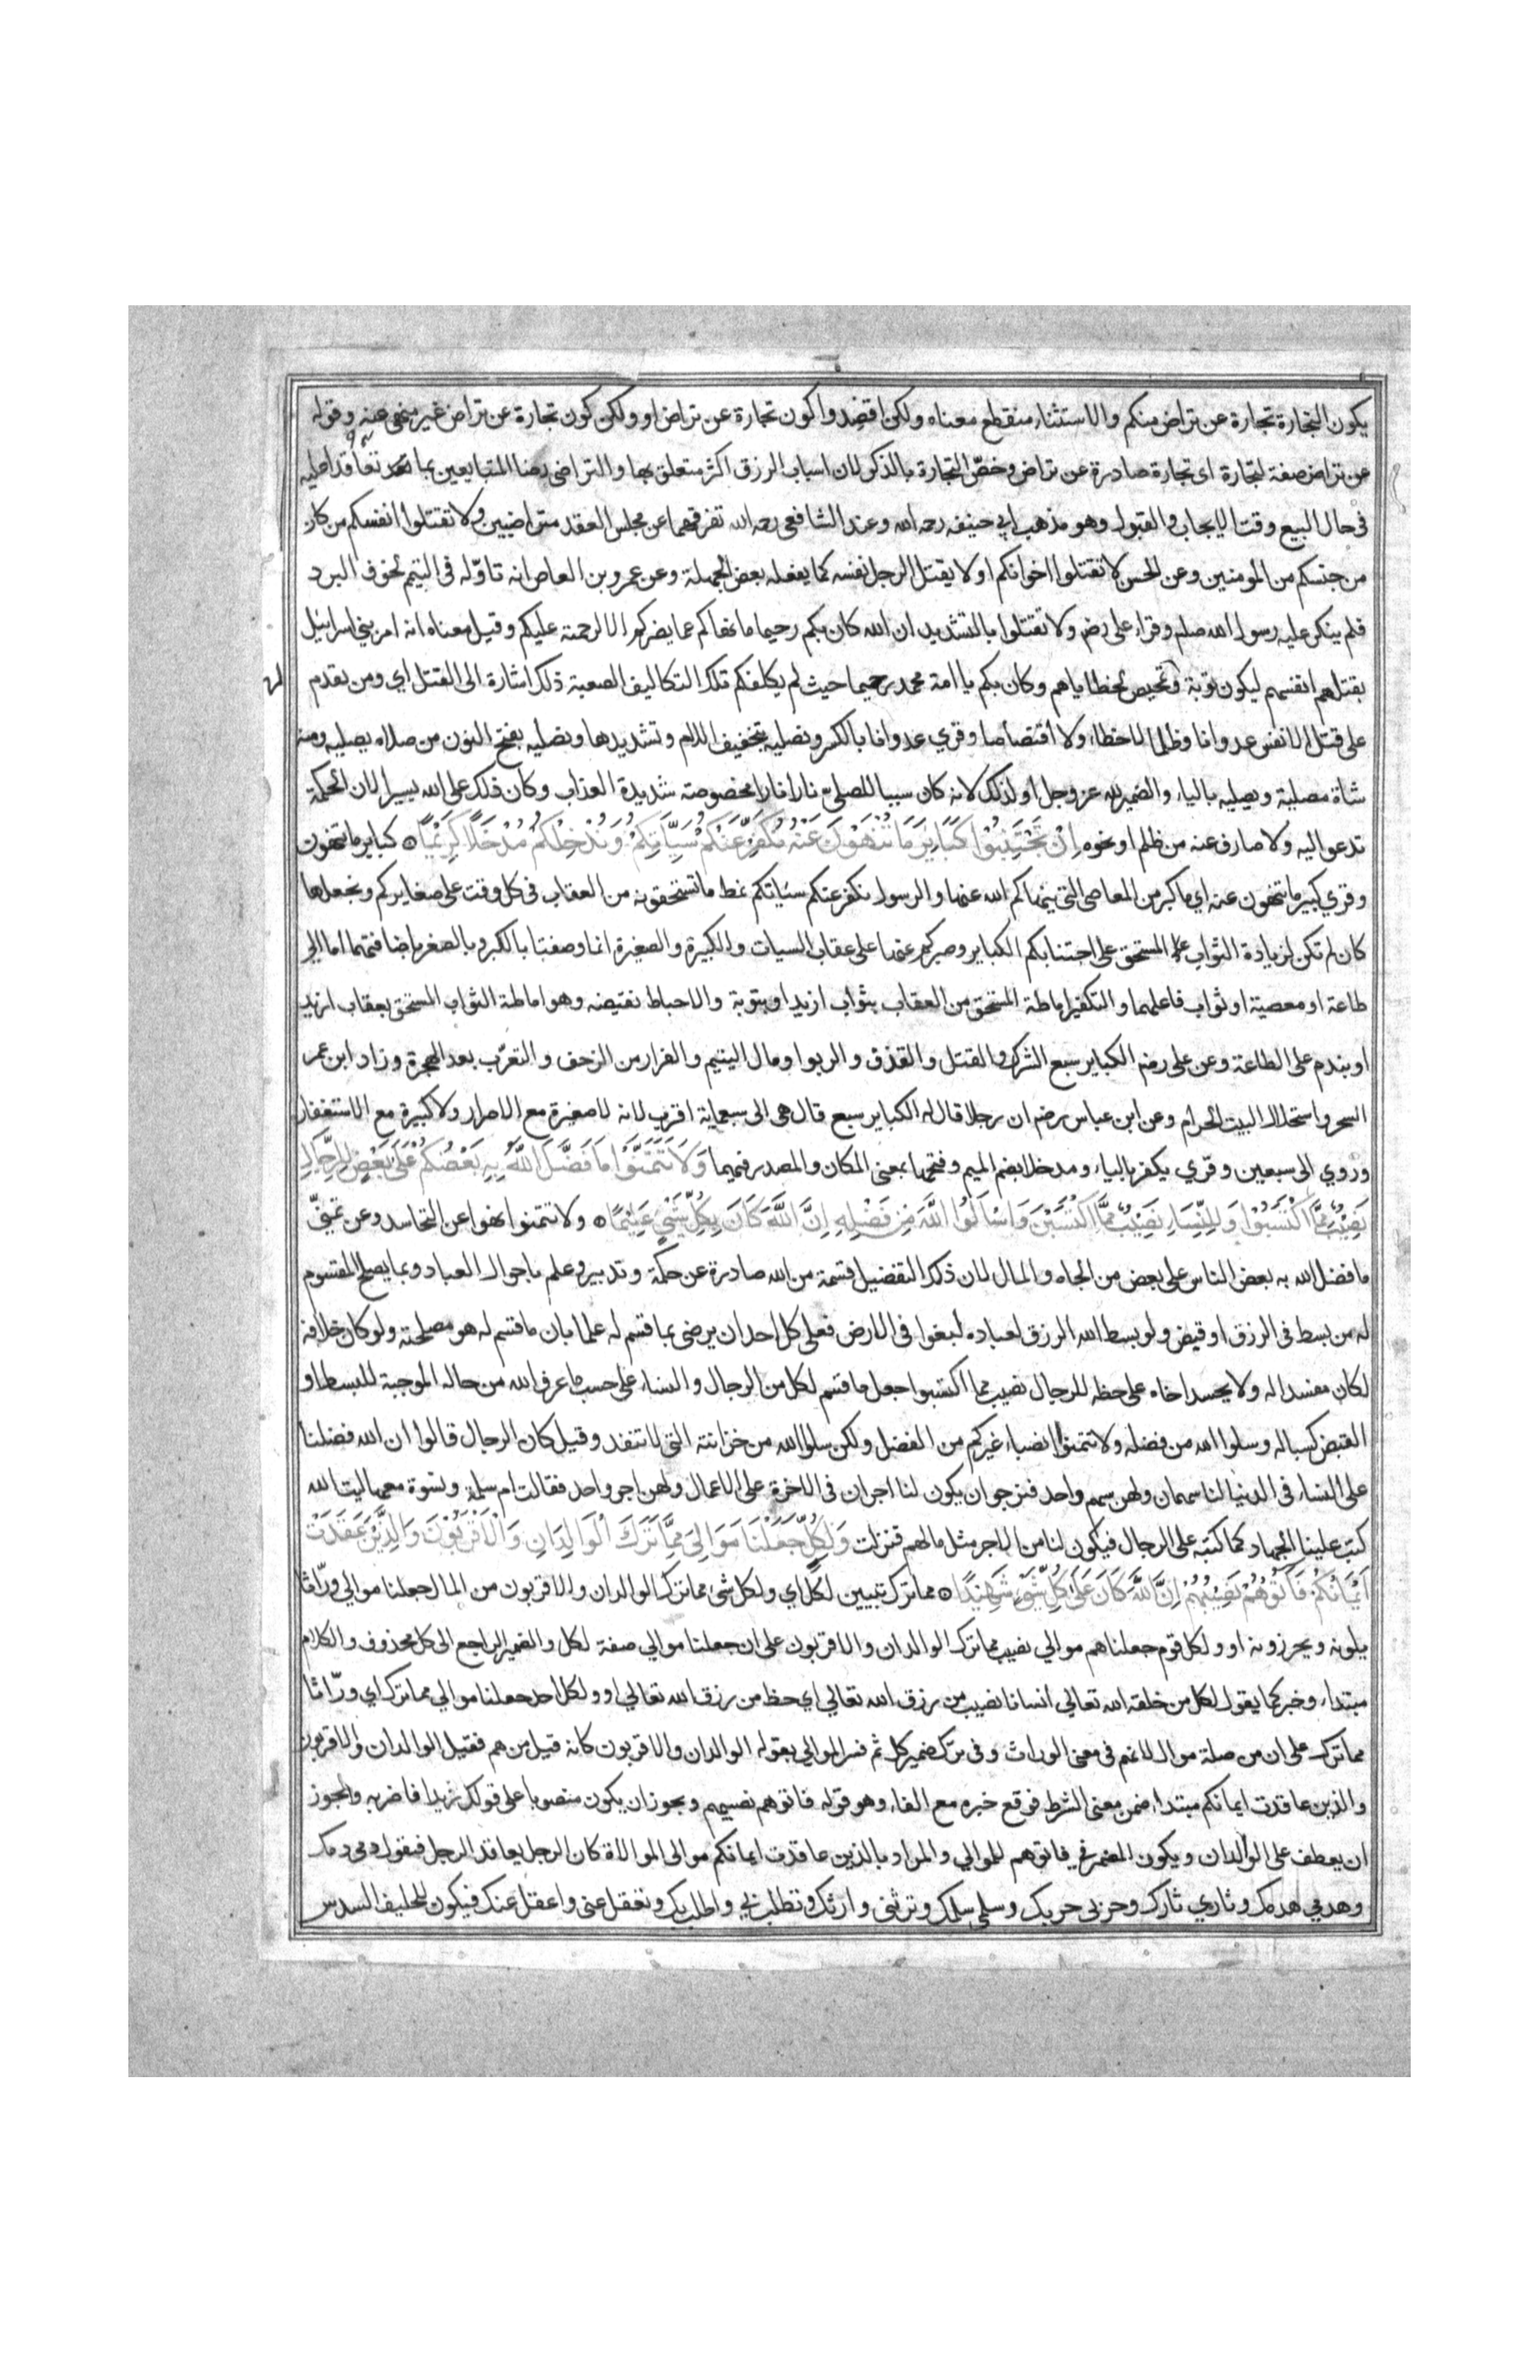 يكون التجارة تجارة عن تراض منكم والاستثناء منقطع معناه ولكن اقصدوا كون تجارة عن تراض او ولكن كون تجارة عن تراض غير منهي عنه وقوله
عن تراض صفة لتجارة اى تجارة صادرة عن تراض وخصّ التجارة بالذكر لان اسباب الرزق اكثر متعلق بها والتراضى رضا المتبايعين بما تعاقدا عليه
فى حال البيع وقت الايجاب والقبول وهو مذهب ابي حنيفه رحمه الله وعند الشافعى رحمه الله تفرقهما عن مجلس العقد متراضيين ولا تقتلوا انفسكم من كان
من جنسكم من المومنين وعن الحسن لا تقتلوا اخوانكم او لا يقتل الرجل نفسه كما يفعله بعض الجهلة وعن عمرو بن العاص انه تاوّله فى التيمم لخوف البرد
فلم ينكر عليه رسول الله صلم وقراء على رض ولا تقتلوا بالتشديد ان الله كان بكم رحيما ما نهاكم عما يضركم الا لرحمته عليكم وقيل معناه انه امر بني اسرائيل
بقتلهم انفسهم ليكون توبة وتمحيص لخطاياهم وكان بكم يا امة محمد رحيما حيث لم يكلفكم تلك التكاليف الصعبة ذلك اشارة الى القتل اي ومن يقدم
على قتل الانفس عدوانا وظلما لا خطاء ولا اقتصاصا وقري عدوانا بالكسر ونصليه بتخفيف اللام وتشديدها ونصليه بفتح النون من صلاه يصليه ومنه
شاة مصلية ويصليه بالياء والضمير لله عز وجل او لذلك لانه كان سببا للصلي نارا نارا مخصوصة شديدة العذاب وكان ذلك على الله يسيرا لان الحكمة
تدعو اليه ولا صارف عنه من ظلم او نحوه اِنْ تَجْتَنِبُوْا كَبَايِرَ مَا تُنْهَوْنَ عَنْهُ نُكَفِّرْ عَنْكُمْ سَيِّاٰتِكُمْ وَنُدْخِلْكُمْ مُدْخَلًا كَرِيْمًا كباير ما تنهون
وقري كبير ما تنهون عنه اي ما كبر من المعاصى التى ينهاكم الله عنها والرسول نكفر عنكم سيئاتكم نمط ما تستحقونه من العقاب فى كل وقت على صغايركم ونجعلها
كان لم تكن لزيادة الثواب المستحق على اجتنابكم الكباير وصبركم عنها على عقاب السيات والكبيرة والصغيرة انما وصفتا بالكبر والصغر باضافتهما اما الى
طاعة او معصية او ثواب فاعلهما والتكفير اماطة المستحق من العقاب بثواب ازيد او بتوبة والاحباط نقيضه وهو اماطة الثواب المستحق بعقاب ازيد
او بندم على الطاعة وعن على رضه الكباير سبع الشرك والقتل والقذف والربوا ومال اليتيم والفرار من الزحف والتعرّب بعد الهجرة وزاد ابن عمر
السحر واستحلال البيت الحرام وعن ابن عباس رضه ان رجلا قال له الكباير سبع قال هى الى سبعماية اقرب لانه لا صغيرة مع الاصرار ولا كبيرة مع الاستغفار
وروي الى سبعين وقري يكفر بالياء ومدخلا بضم الميم وفتحها بمعنى المكان والمصدر فيهما وَلَا تَتَمَنَّوْا مَا فَضَّلَ اللّٰهُ بِهِ بَعْضَكُمْ عَلٰى بَعْضٍ لِلرِّجَالِ
نَصِيْبٌ مِمَّا اكْتَسَبُوْا وَلِلنِّسَاءِ نَصِيْبٌ مِمَّا اكْتَسَبْنَ وَاسْأَلُوْا اللّٰهَ مِنْ فَضْلِهِ اِنَّ اللّٰهَ كَانَ بِكُلِّ شَيْءٍ عَلِيْمًا ولا تتمنوا نهوا عن التحاسد وعن تمنّي
ما فضل الله به بعض الناس على بعض من الجاه والمال لان ذلك التفضيل قسمة من الله صادرة عن حكمة وتدبير وعلم باحوال العباد وبما يصلح المقسوم
له من بسط فى الرزق او قبض ولو بسط الله الرزق لعباده لبغوا فى الارض فعلى كل احد ان يرضى بما قسم له علما بان ما قسم له هو مصلحته ولو كان خلافه
لكان مفسدا له ولا يحسد اخاه على حظه للرجال نصيب مما اكتسبوا جعل ما قسم لكل من الرجال والنساء على حسب ما عرف الله من حاله الموجبة للبسط او
القبض كسبا له وسلوا الله من فضله ولا تتمنوا انصباء غيركم من الفضل ولكن سلوا الله من خزائنه التى لا تنفد وقيل كان الرجال قالوا ان الله فضلنا
على النساء فى الدنيا لنا سهمان ولهن سهم واحد فنرجو ان يكون لنا اجران فى الاخرة على الاعمال ولهن اجر واحد فقالت ام سلمة ونسوة معها ليت الله
كتب علينا الجهاد كما كتبه على الرجال فيكون لنا من الاجر مثل ما لهم فنزلت وَلِكُلٍّ جَعَلْنَا مَوَالِىَ مِمَّا تَرَكَ الْوَالِدَانِ وَالْاَقْرَبُوْنَ وَالَّذِيْنَ عَقَدَتْ
اَيْمَانُكُمْ فَاٰتُوْهُمْ نَصِيْبَهُمْ اِنَّ اللّٰهَ كَانَ عَلٰى كُلِّ شَيْءٍ شَهِيْدًا مما ترك تبيين لكل اي ولكل شئ مما ترك الوالدان والاقربون من المال جعلنا موالي ورّاثا
يلونه ويحرزونه او ولكل قوم جعلناهم موالي نصيب مما ترك الوالدان والاقربون على ان جعلنا موالي صفة لكل والضمير الراجع الى كل محذوف والكلام
مبتداء وخبر كما يقول لكل من خلقه الله تعالى انسانا نصيب من رزق الله تعالي اي حظ من رزق الله تعالي او ولكل احد جعلنا موالي مما ترك اي ورّاثا
مما ترك على ان من صلة موال لانهم فى معنى الوراث وفى ترك ضمير كل ثم فسر الموالي بقوله الوالدان والاقربون كانه قيل من هم فقيل الوالدان والاقربون
والذين عاقدت ايمانكم مبتداء ضمن معنى الشرط فوقع خبره مع الفاء وهو قوله فاتوهم نصيبهم ويجوز ان يكون منصوبا على قولك زيدا فاضربه ويجوز
ان يعطف على الوالدان ويكون المضمر في فاتوهم للموالي والمراد بالذين عاقدت ايمانكم موالى الموالاة كان الرجل يعاقد الرجل فيقول دمى دمك
وهدمي هدمك وثاري ثارك وحربى حربك وسلمى سلمك وترثنى وارثك وتطلب بي واطلب بك وتعقل عنى واعقل عنك فيكون للحليف السدس